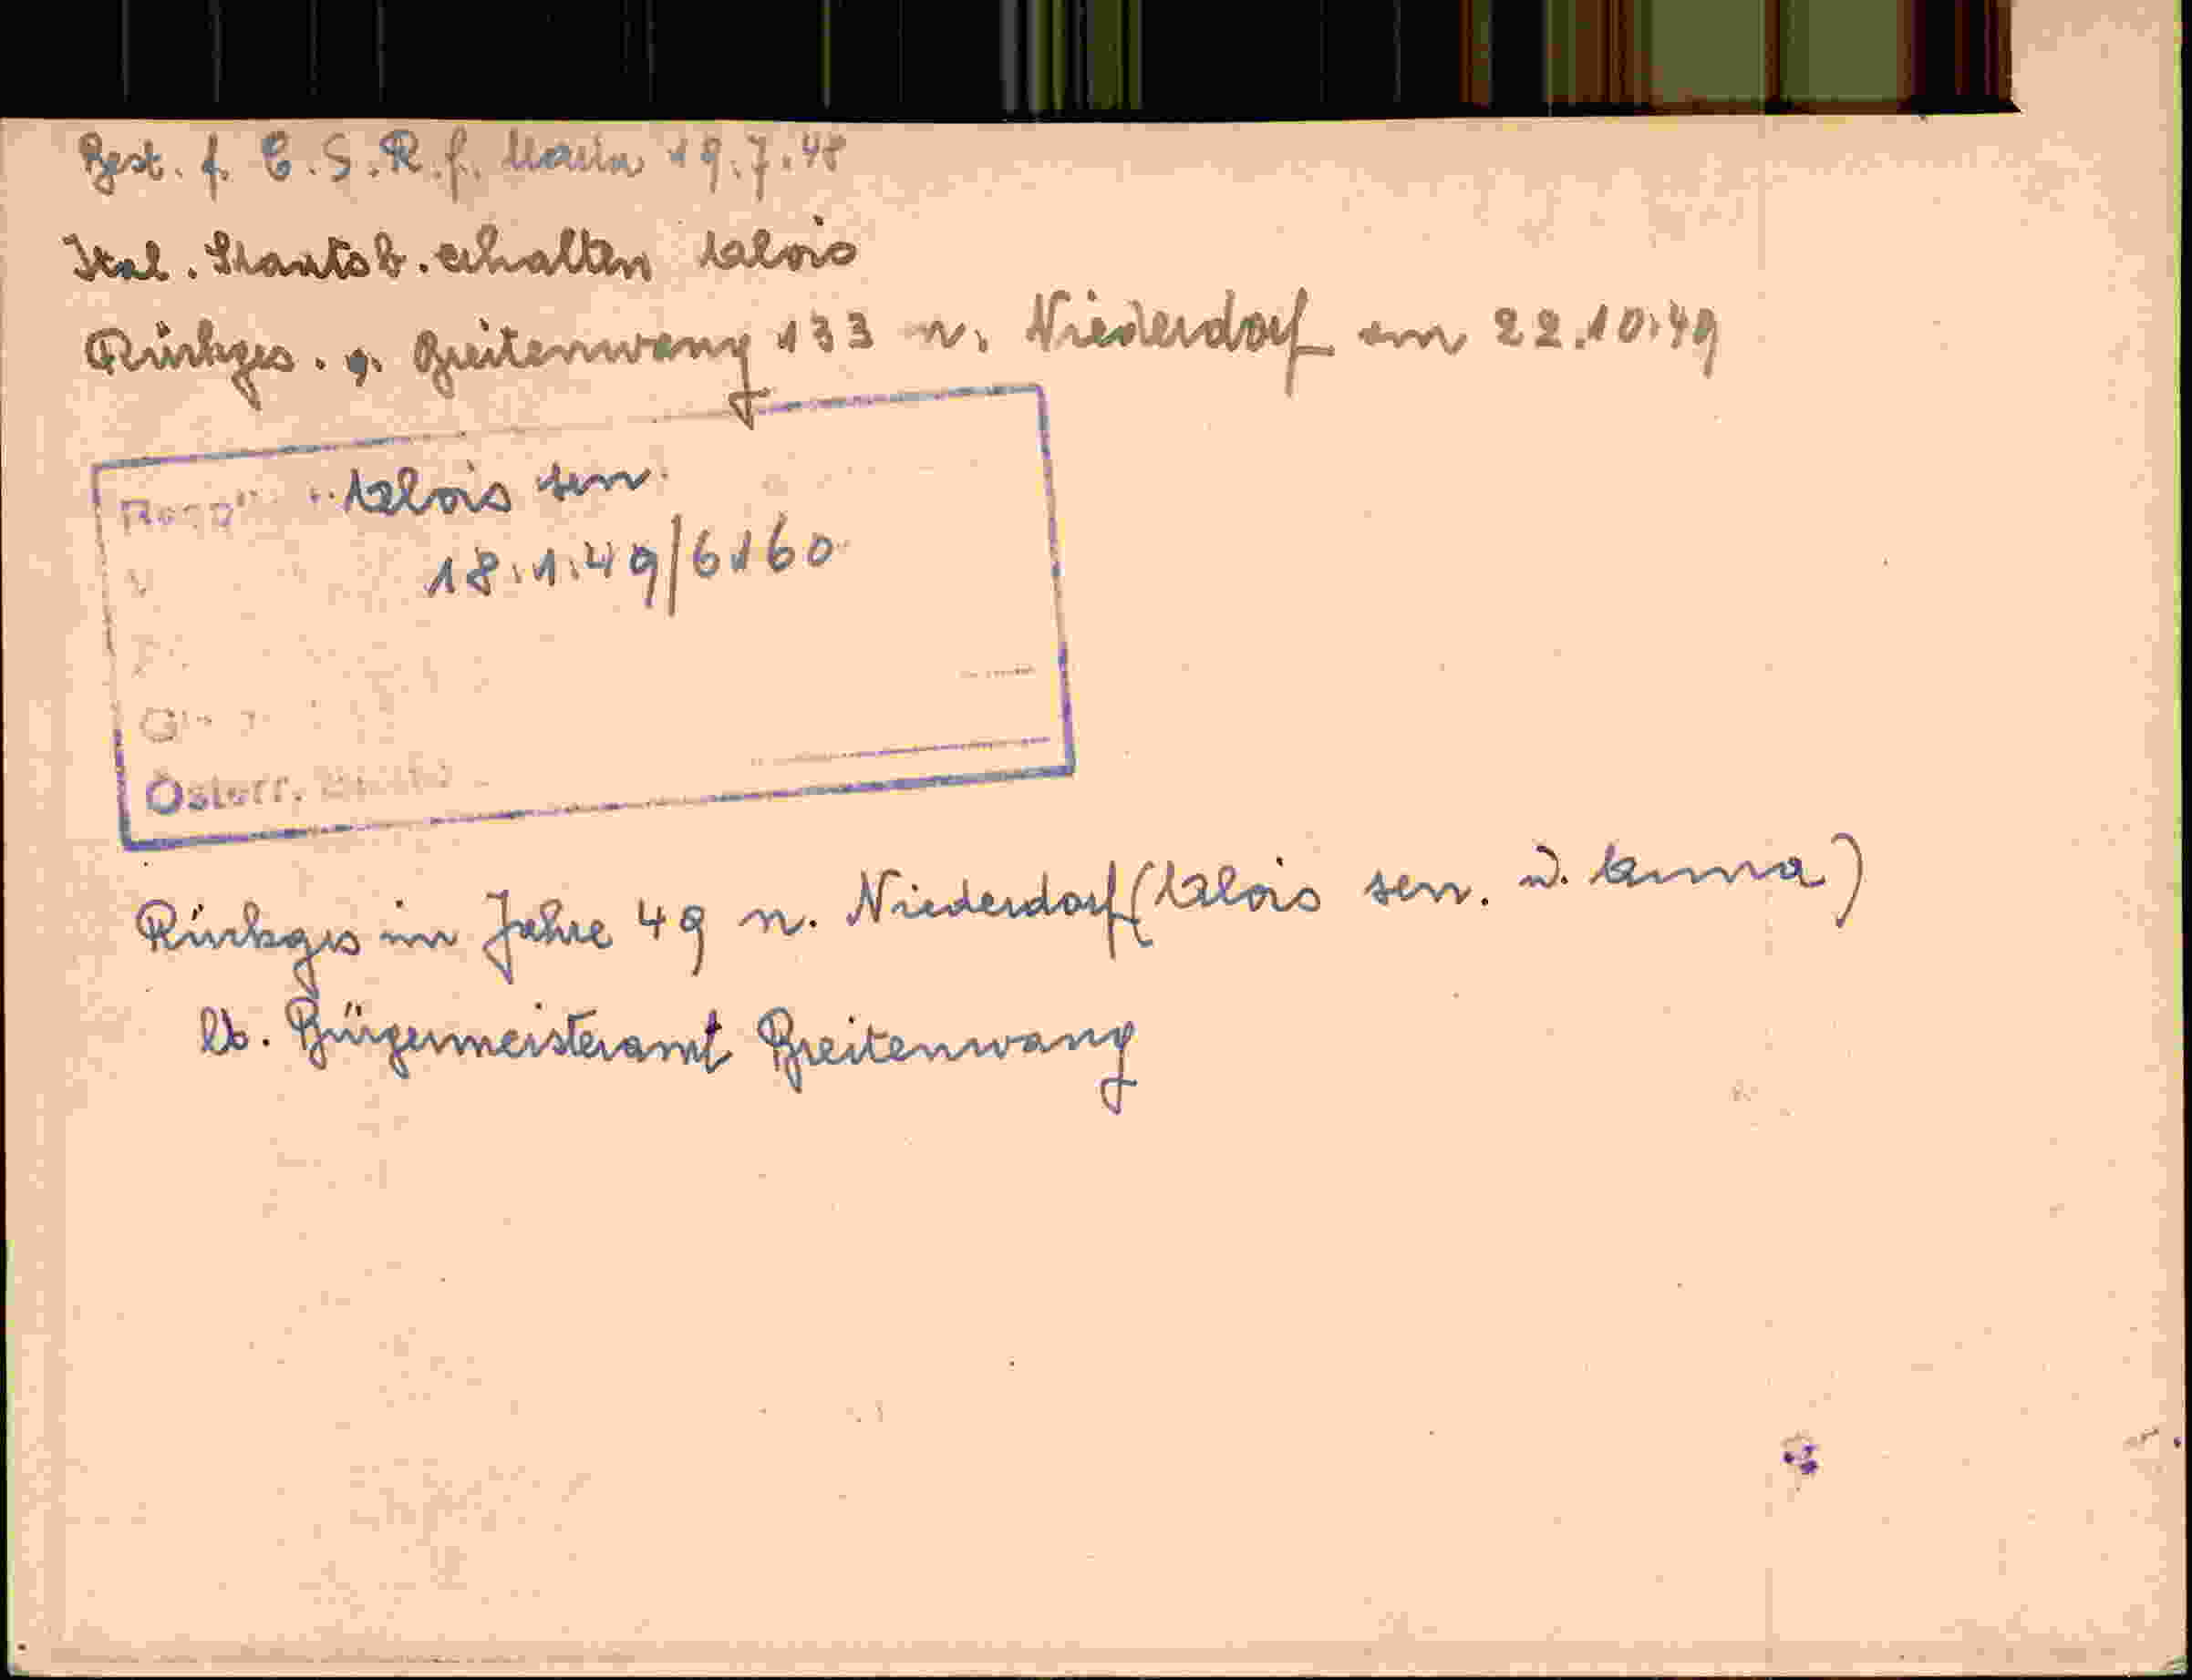 Best. f. C.S.R. f. Maria 19.7.48
Ital. Staatsb. erhalten Alois
Rückges. v. Breitenwang 133 n. Niederdorf am 22.10.49
Alois sen.
18.1.49/6160
Österr.
Rückges im Jahre 49 n. Niederdorf (Alois sen. u. Anna)
lt. Bürgermeisteramt Breitenwang